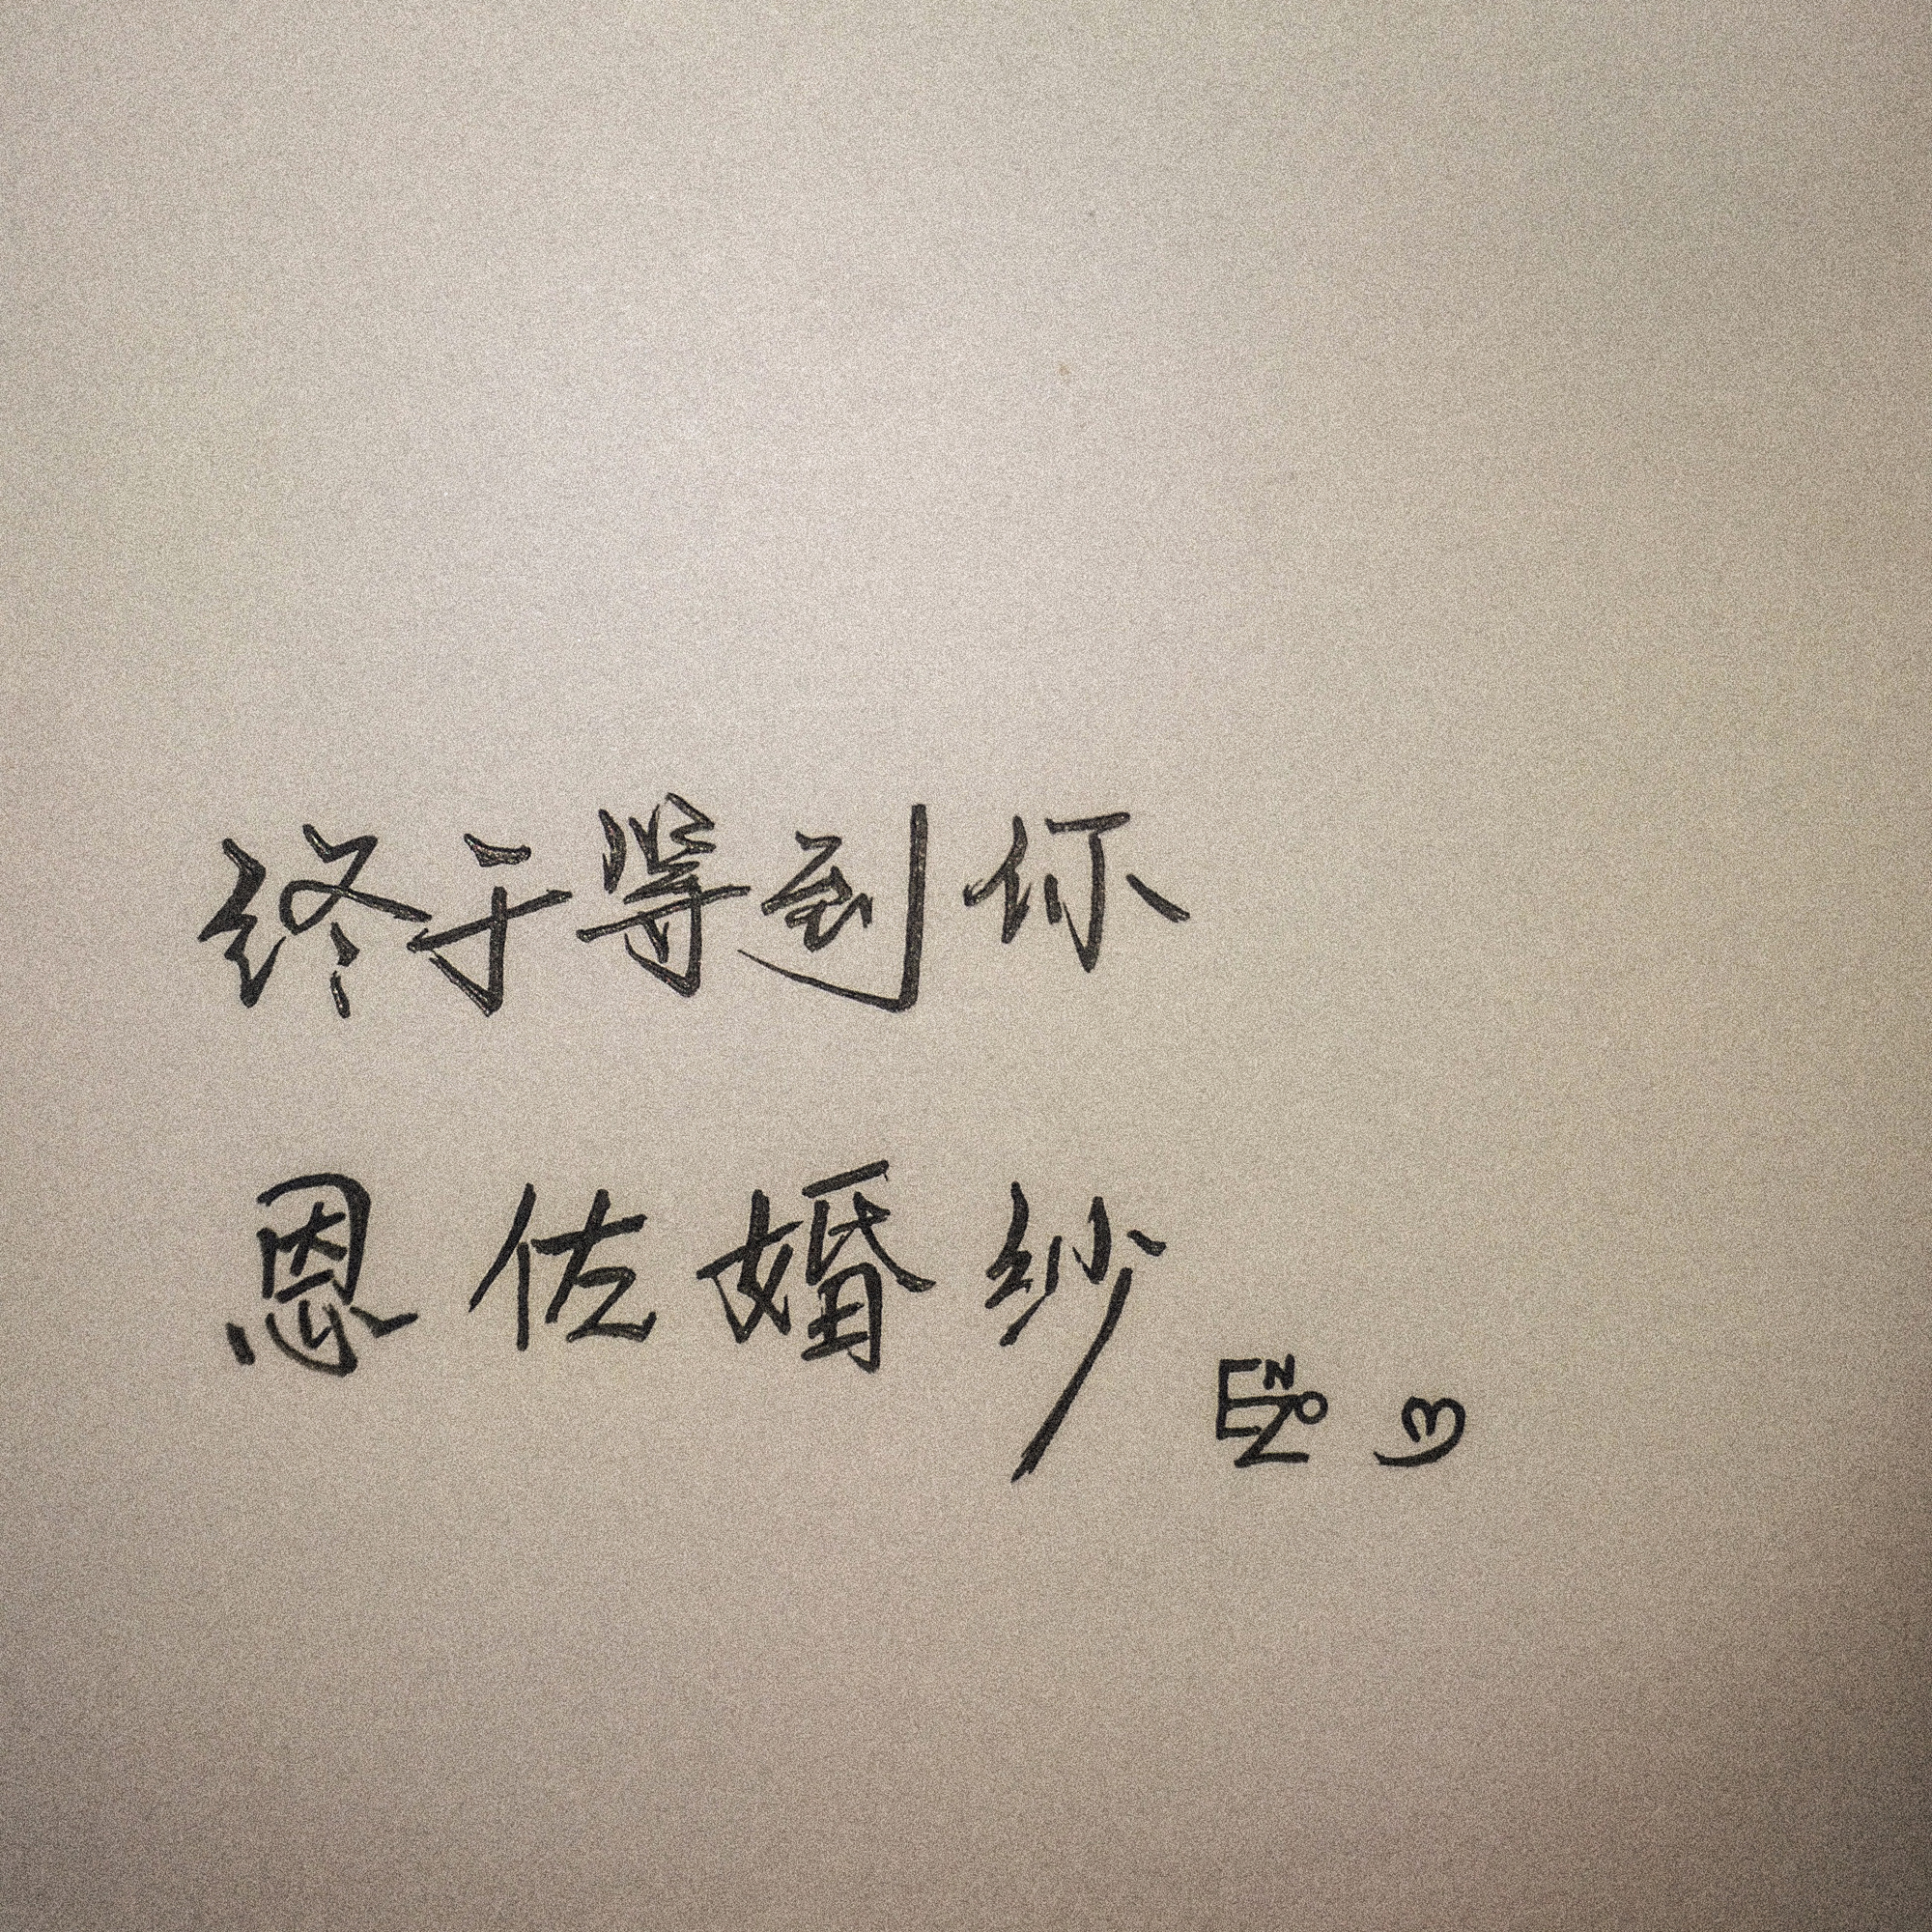 终于等到你
恩佐婚纱
ENZO